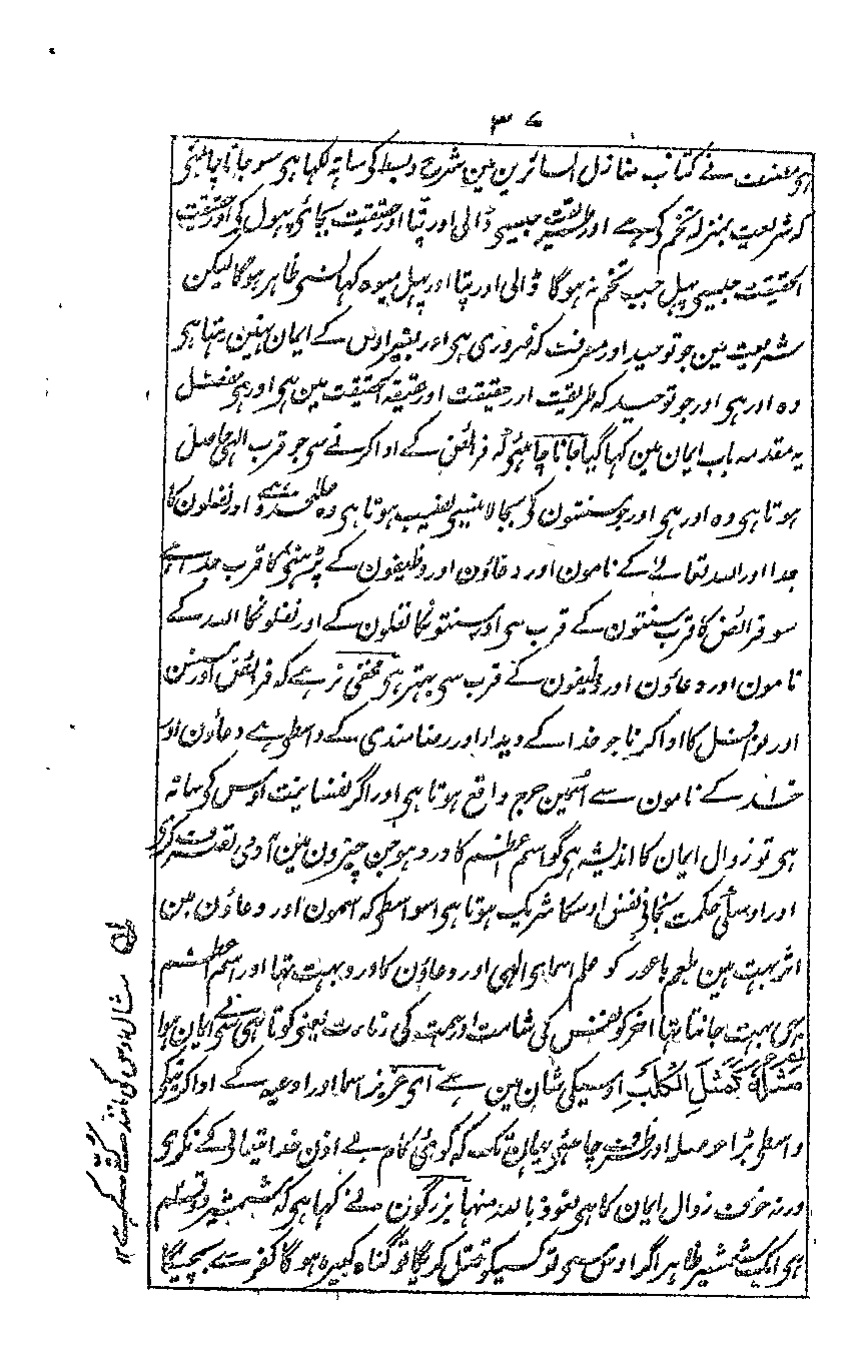 ۳۷
ہی مصنف نے کتاب منازل السائرین مین شرح وبسط کی ساتہ لکہا ہی سو جانا چاہئی
کہ شریعت بمنزلہ تخم کی ہے اور طریقت جیسی ڈالی اور پتا اور حقیقت بجائ پہول کی اور حقیقت
الحقیقت جیسی پہل جب تخم نہ ہوگا ڈالی اور پتا اور پہل میوہ کہانسی ظاہر ہوگا لیکن
شریعت مین جو توحید اور معرفت کہ ضروری ہی اور بغیر اوس کے ایمان نہین رہتا ہی
وہ اور ہی اور جو توحید کہ طریقت اور حقیقت اور حقیقۃ الحقیقت مین ہی اور ہی مفصل
یہ مقدمہ باب ایمان مین کہا گیا جانا چاہئی کہ فرائض کے ادا کرنے سی جو قرب الہی حاصل
ہوتا ہی وہ اور ہی اور جو سنتون کی بجا لانیسی نصیب ہوتا ہی وہ علیحدہ ہے اور نفلون کا
جدا اور اللہ تعالے کے نامون اور دعاؤن اور وظیفون کے پڑہنی کا قرب جدا ہے
سو فرائض کا قرب سنتون کے قرب سی اور سنتونکا نفلون کے اور نفلونکا اللہ کے
نامون اور دعاؤن اور وظیفون کے قرب سی بہتر ہی مخفی نرہے کہ فرائض اور سنن
اور نوافل کا ادا کرنا جو خدا کے دیدار اور رضامندی کے واسطی ہے دعاؤن اور
خدا کے نامون سے اسمین حرج واقع ہوتا ہی اور اگر نفسانیت اوس کی ساتہ
ہی تو زوال ایمان کا اندیشہ ہی گو اسم اعظم کا ورد ہو جن چیزون مین آدمی تصرف کری
اور اوسکی حکمت بنجانی نفس اوسکا شریک ہوتا ہی اسواسطی کہ اسمون اور دعاؤن مین
اثر بہت ہین بلعم باعور کو علم اسمای الہی اور دعاؤن کا ورد بہت تہا اور اسم اعظم
بہی بہت جانتا تہا آخر کو نفس کی شامت اور ہمت کی یعنی کوتاہی سی بے ایمان ہوا
فَمَثَلُهٗ كَمَثَلِ الْكَلْبِ اوسیکی شان مین ہے ای عزیز اسما اور ادعیہ کے ادا کرنیکو
واسطی بڑا حوصلہ اور ظرف چاہئی یہان تک کہ کوئی کام بے اذن خدا تعالی کے نکری
ورنہ خوف زوال ایمان کا ہی نعوذ باللہ منہا بزرگون نے کہا ہی کہ شمشیر دو قسم
ہی ایک شمشیر ظاہر اگر اوس سی تو کسیکو قتل کریگا تو گناہ کبیرہ ہوگا کفر سے بچیگا
مثال اوس کی مانند کتے کی ہے ۱۲